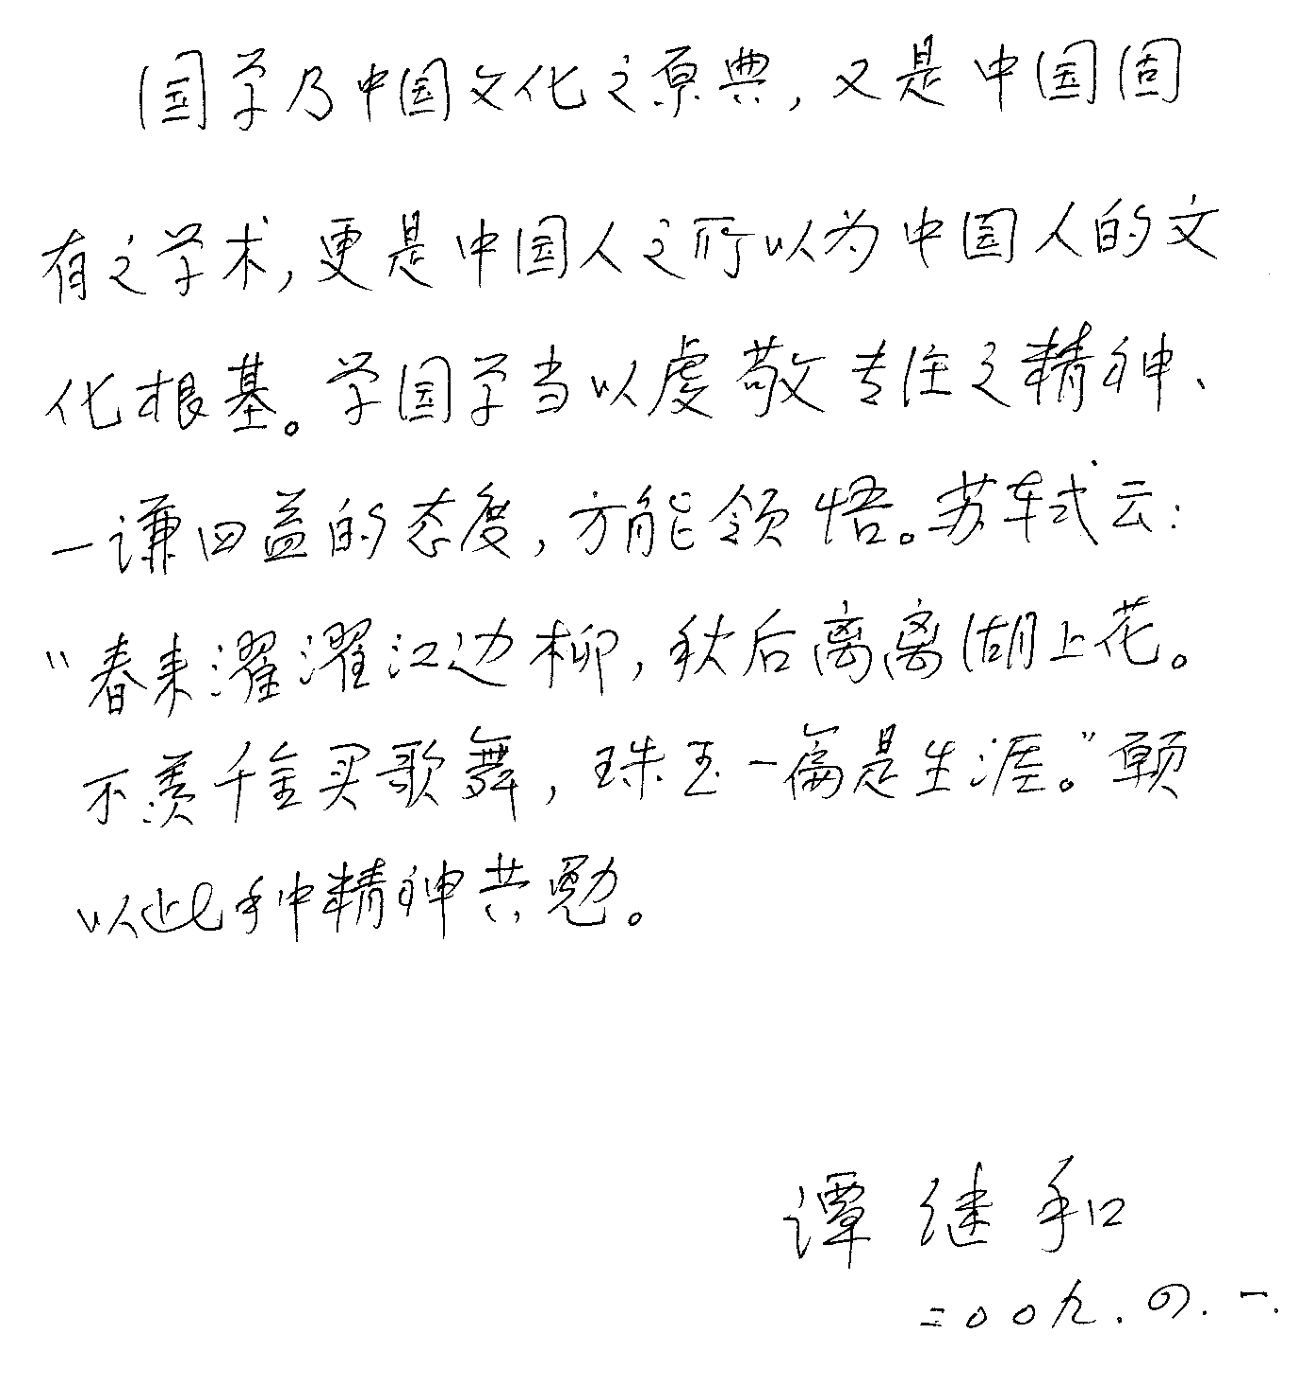 国学乃中国文化之原典,又是中国固
有之学术,更是中国人之所以为中国人的文
化根基。学国学当以虔敬专注之精神、
一谦四益的态度,方能领悟。苏轼云:
“春来濯濯江边柳,秋后离离湖上花。
不羡千金买歌舞,珠玉一篇是生涯。”愿
以此种精神共勉。
谭继和
二〇〇九.四.一.